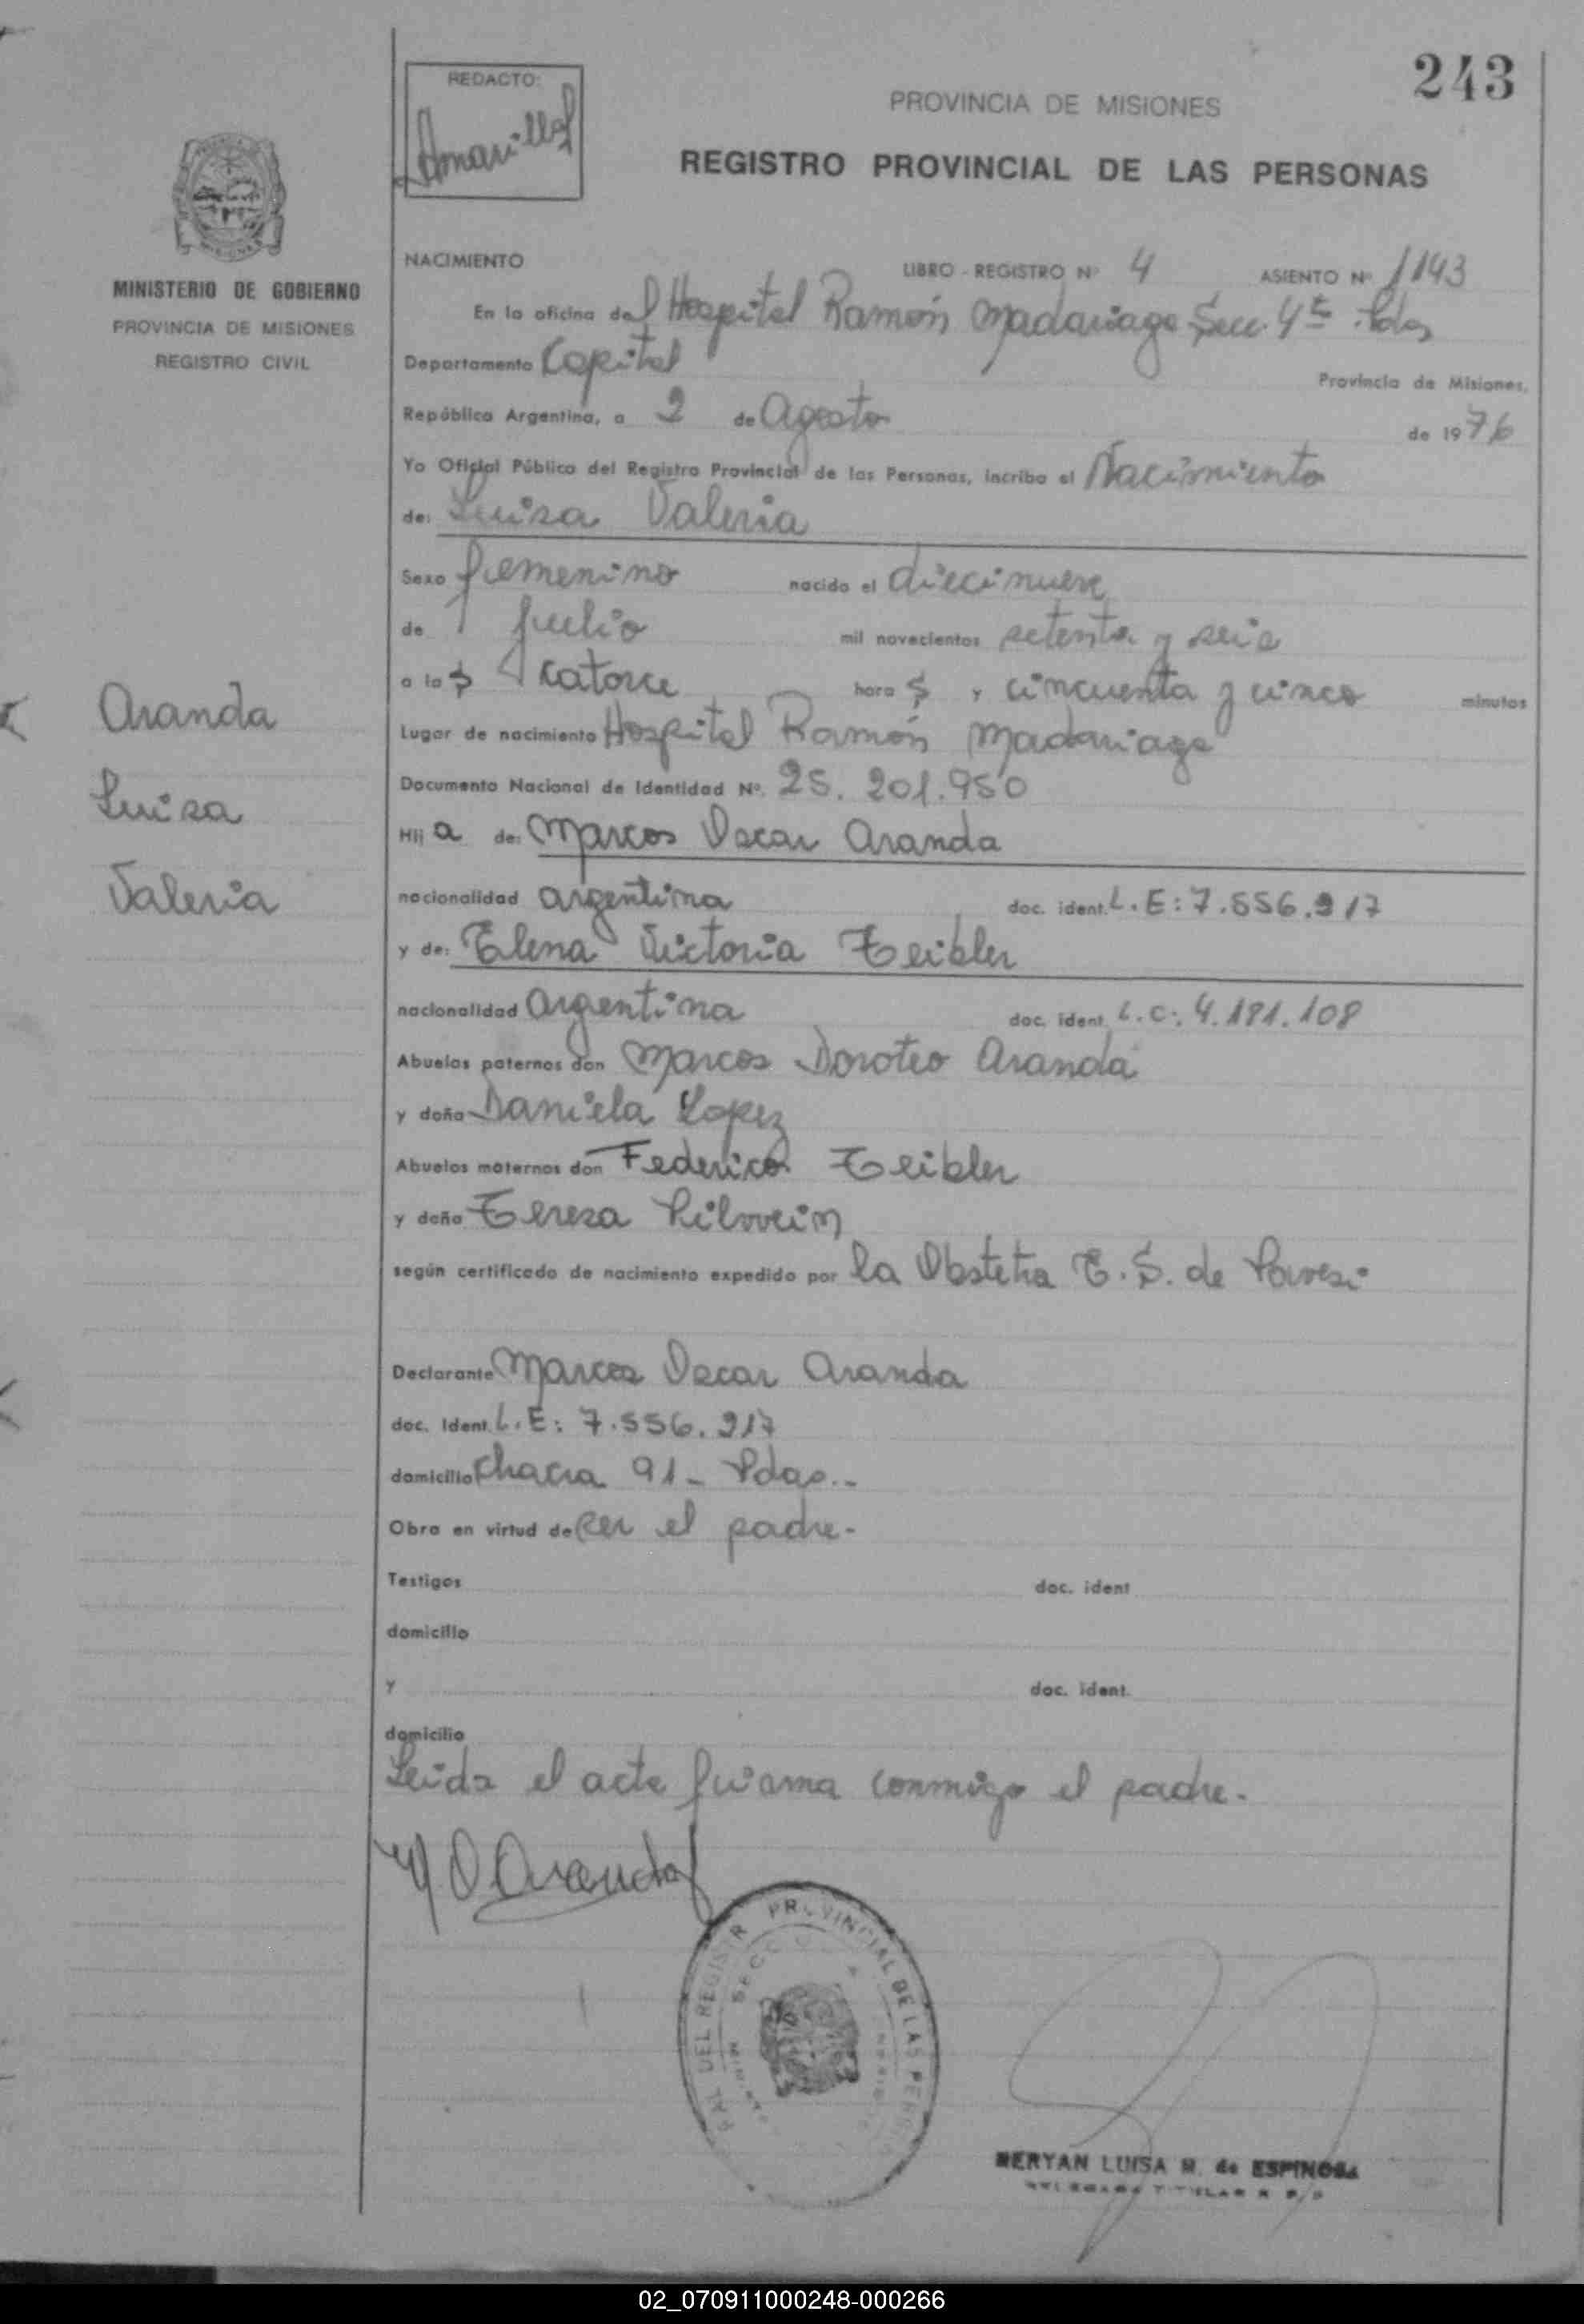 243
REDACTO:
Amarilla
PROVINCIA DE MISIONES
REGISTRO PROVINCIAL DE LAS PERSONAS
MISIONES
MINISTERIO DE GOBIERNO
PROVINCIA DE MISIONES
REGISTRO CIVIL
NACIMIENTO LIBRO - REGISTRO Nº 4 ASIENTO Nº 1143
En la oficina del Hospital Ramón Madariaga Secc. 4ta Pdas
Departamento Capital Provincia de Misiones,
República Argentina, a 2 de Agosto de 1976
Yo Oficial Público del Registro Provincial de las Personas, incribo el Nacimiento
de: Luisa Valeria
Sexo femenino nacido el diecinueve
de julio mil novecientos setenta y seis
a las catorce horas y cincuenta y cinco minutos
Lugar de nacimiento Hospital Ramón Madariaga
Documento Nacional de Identidad Nº. 25.201.950
Hija de: Marcos Oscar Aranda
nacionalidad argentina doc. ident. L.E: 7.556.917
y de: Elena Victoria Teibler
nacionalidad Argentina doc. ident. L.C: 4.181.108
Abuelos paternos don Marcos Doroteo Aranda
y doña Daniela Lopez
Abuelos maternos don Federico Teibler
y doña Teresa
según certificado de nacimiento expedido por la Obstetra E.S. de Pavesi
Declarante Marcos Oscar Aranda
doc. Ident. L.E: 7.556.917
domicilio Chacra 91 - Pdas.-
Obra en virtud de ser el padre.-
Testigos doc. ident
domicilio
y doc. ident.
domicilio
Leida el acta firma conmigo el padre.-
M O Aranda
Aranda
Luisa
Valeria
PROVINCIAL DE LAS
MERYAN LUISA M. de ESPINOSA
02_070911000248-000266